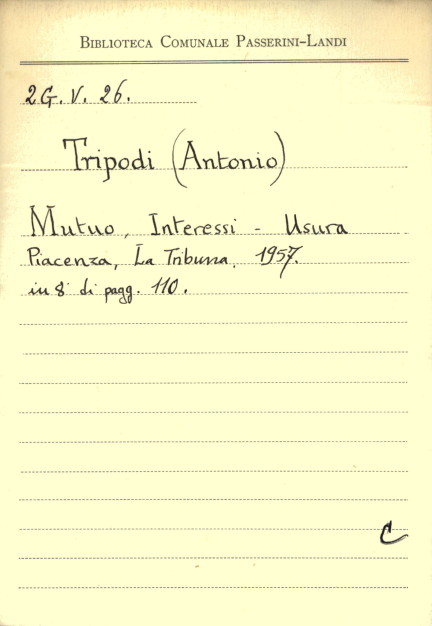 BIBLIOTECA COMUNALE PASSERINI-LANDI
2G. V. 26.
Tripodi (Antonio)
Mutuo, Interessi - Usura
Piacenza, La Tribuna, 1957.
in 8° di pagg. 110.
C